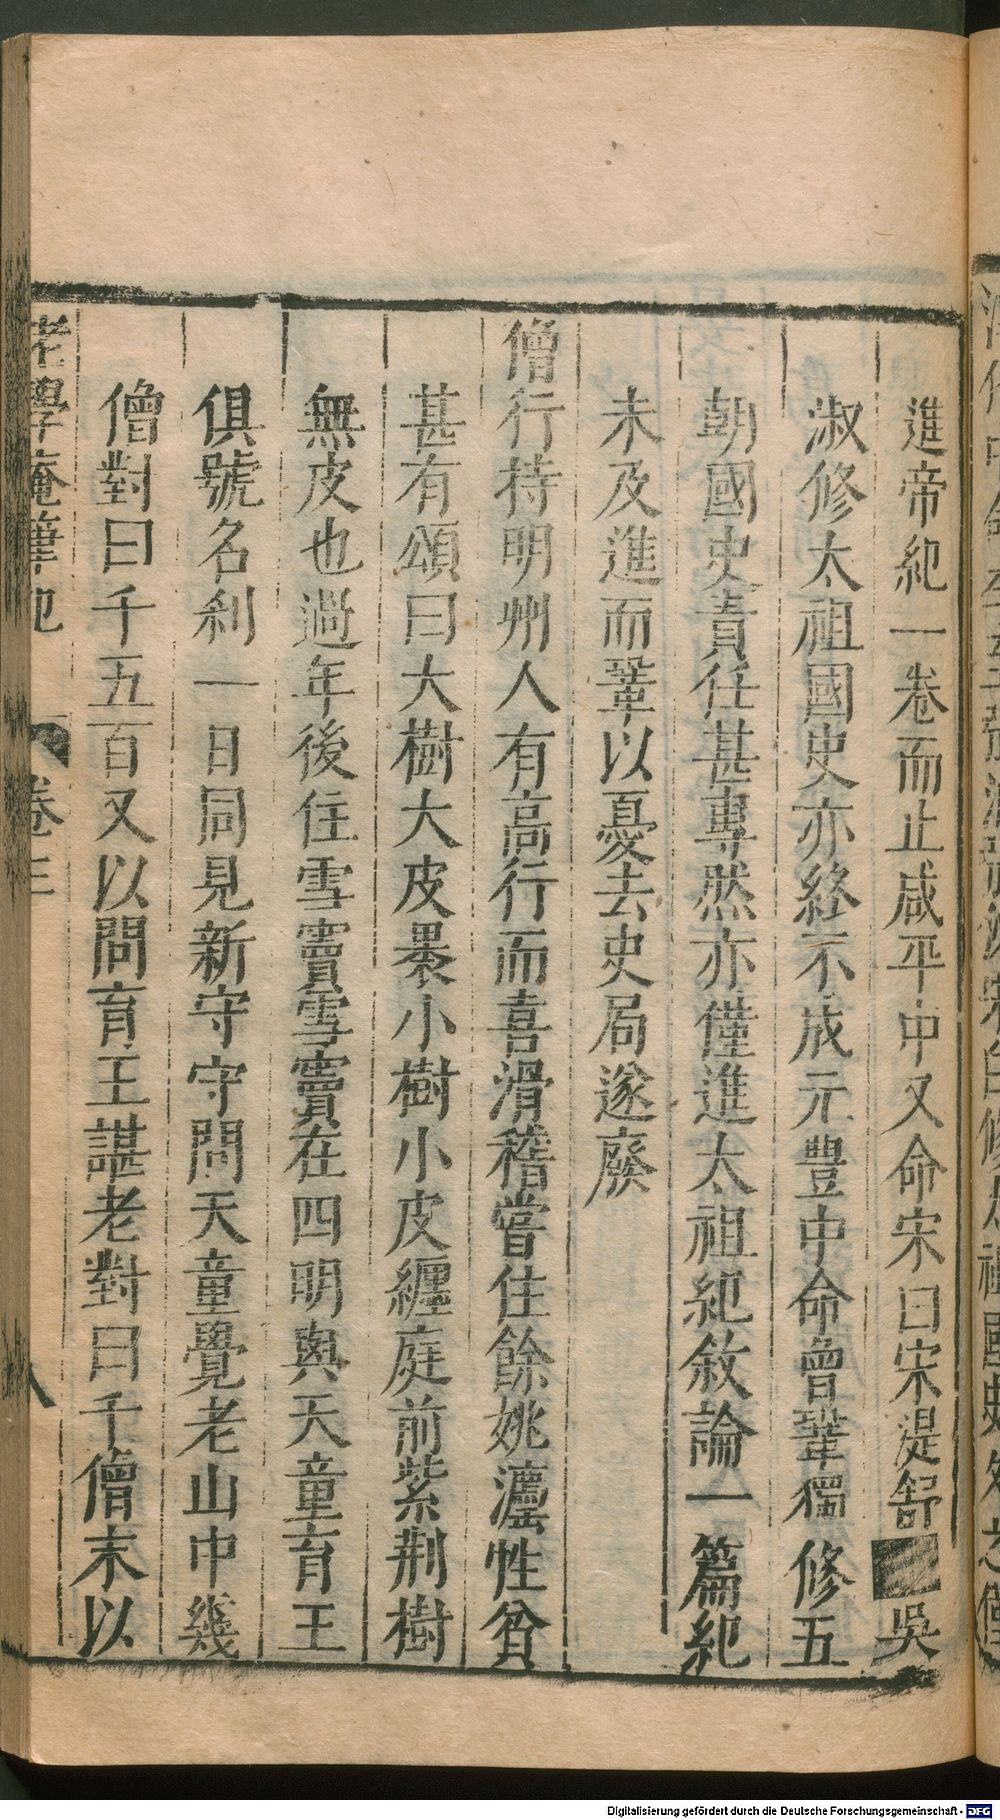 進帝紀一卷而止咸平中又命宋曰宋湜舒■吳
淑修太祖國史亦終不成元豐中命曾鞏獨修五
朝國史責任甚專然亦僅進太祖紀敘論一篇紀
未及進而鞏以憂去史局遂廢
僧行持明州人有高行而喜滑稽嘗住餘姚灋性貧
甚有頌曰大樹大皮褁小樹小皮纏庭前紫荆樹
無皮也過年後住雪竇雪竇在四明與天童育王
俱號名利一日同見新守守問天童覺老山中幾
僧對曰千五百又以問育王諶老對曰千僧末以
老學庵筆記 卷三 八
Digitalisierung gefördert durch die Deutsche Forschungsgemeinschaft - DFG